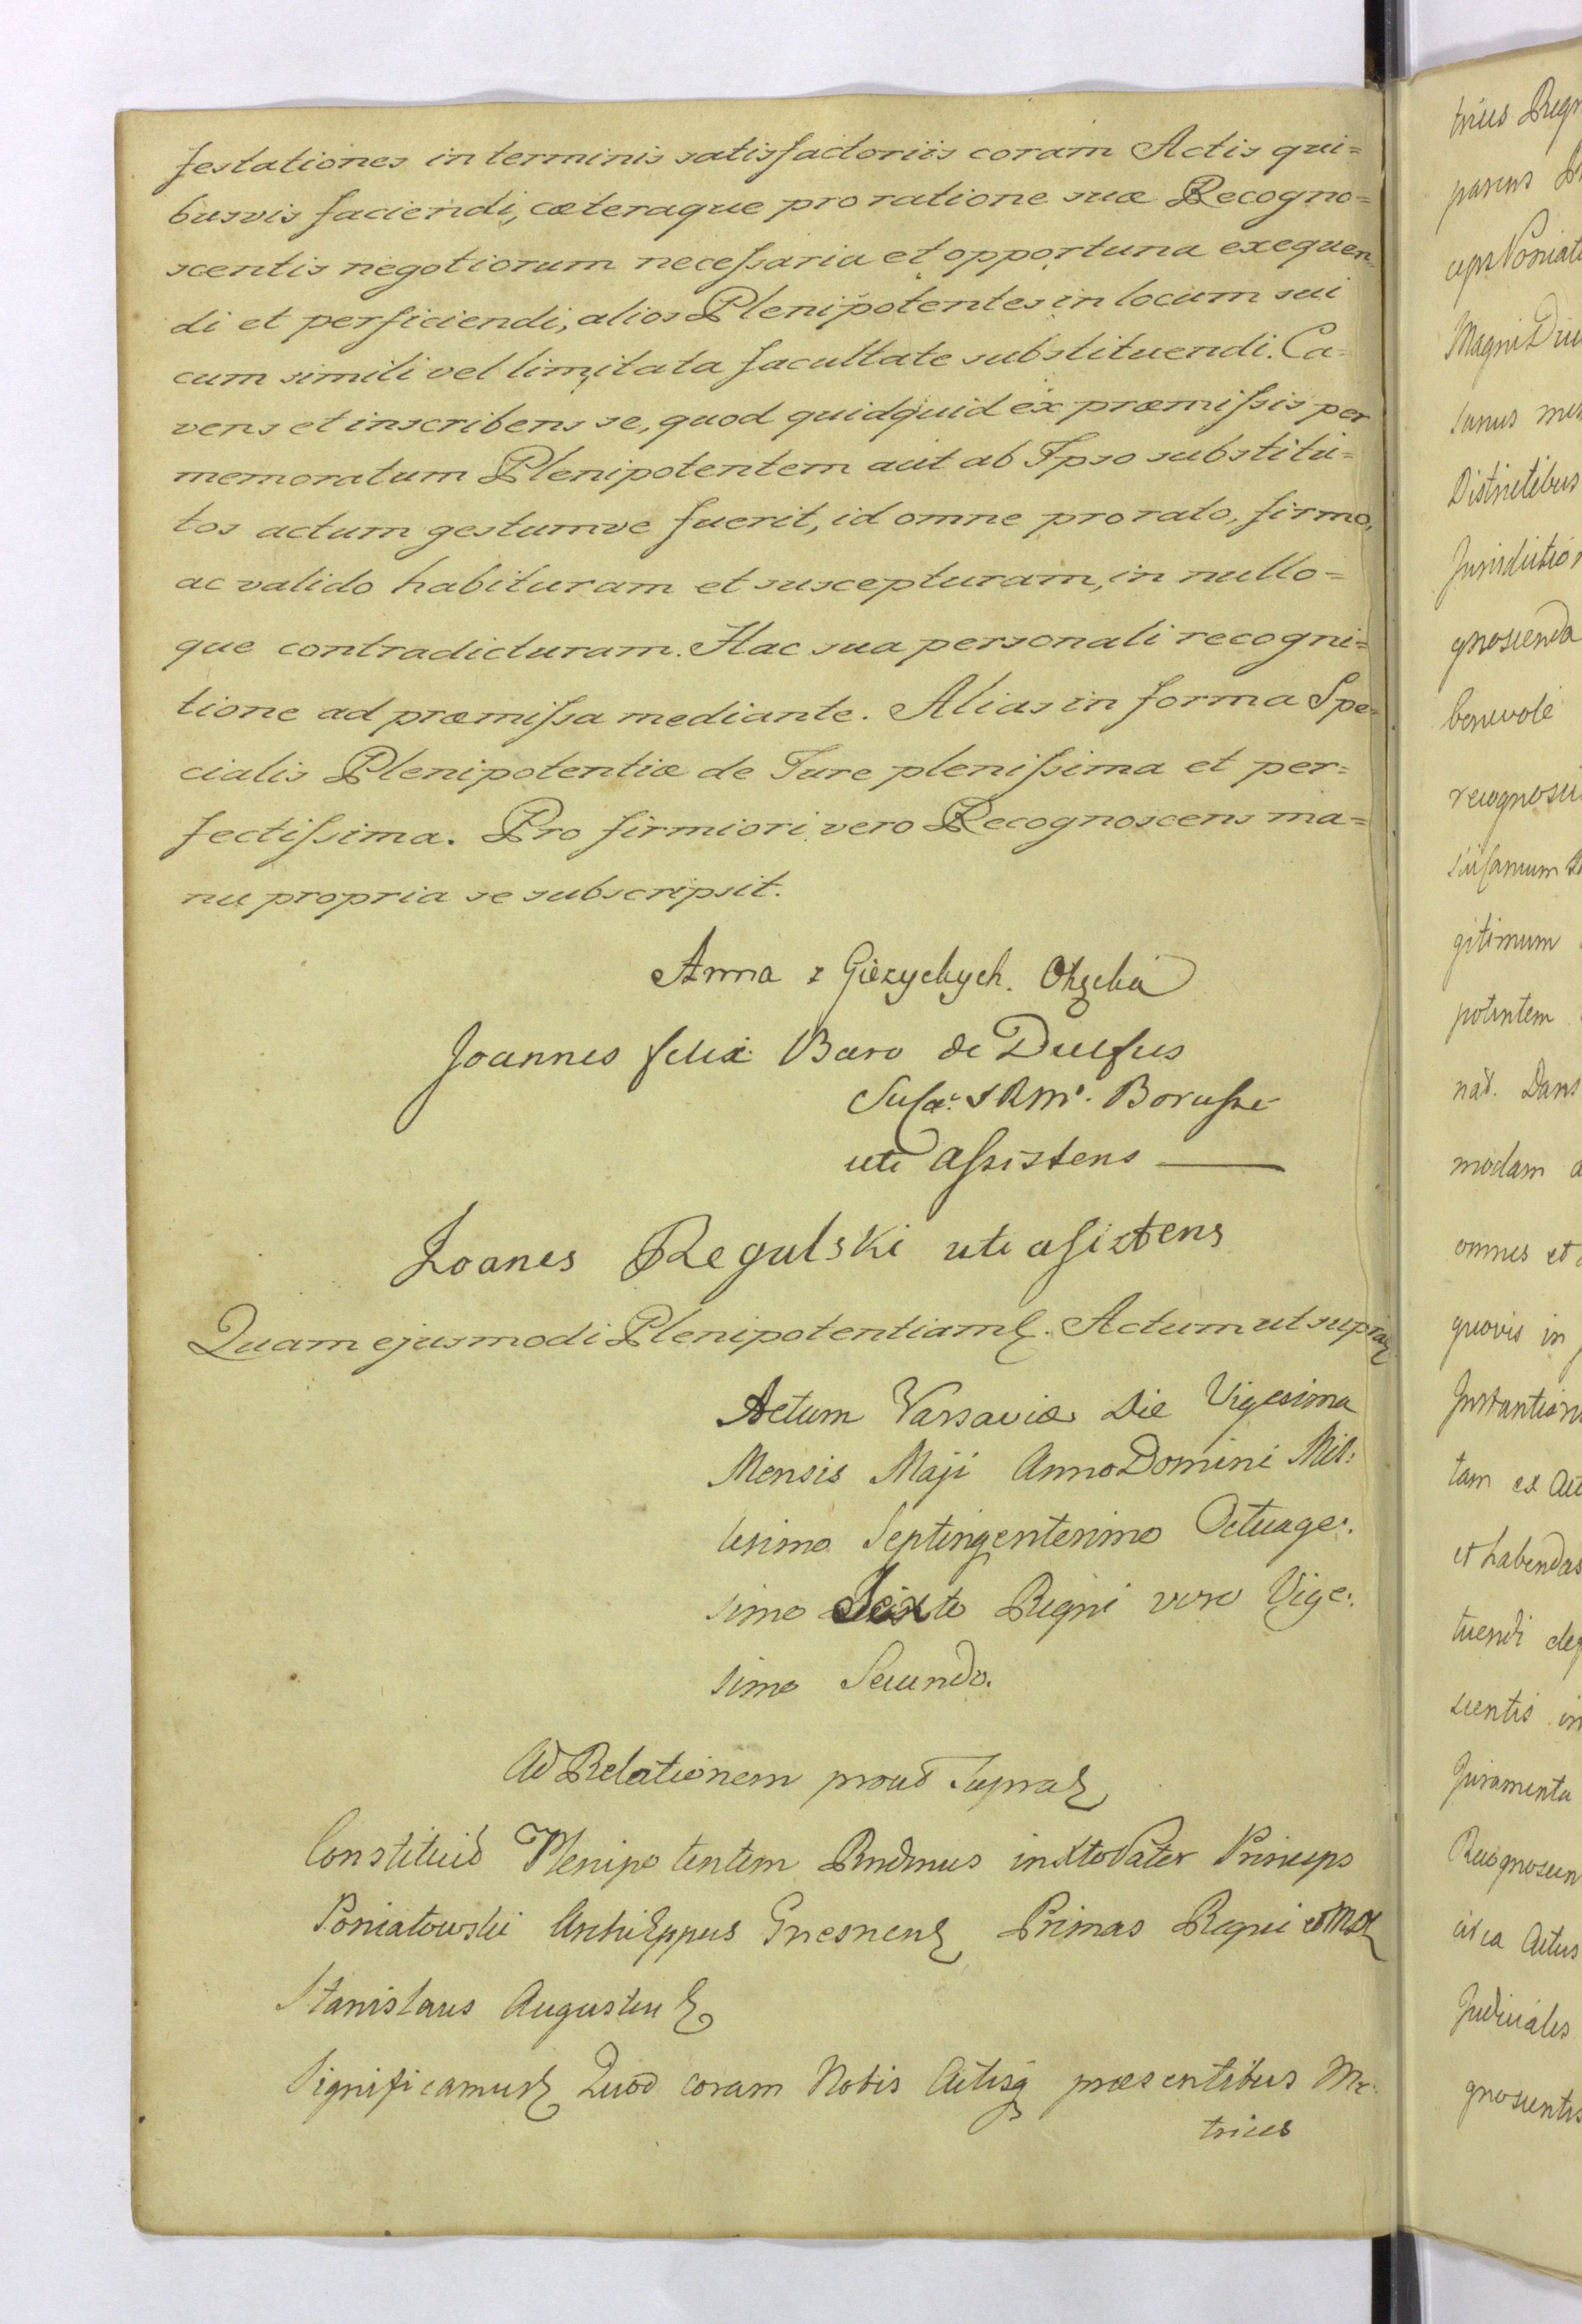 festationes in terminis satisfactoriis coram Actis qui=
busvis faciendi, cæteraque pro ratione suæ Recogno=
scentis negotiorum necessaria et opportuna exequen=
di et perficiendi, alios Plenipotentes in locum sui
cum simili vel limitata facultate substituendi. Ca=
vens et inscribens se, quod quidquid ex præmissis per
memoratum Plenipotentem aut ab Ipso substitu=
tos actum gestumve fuerit, id omne pro rato, firmo,
ac valido habituram et suscepturam, in nullo=
que contradicturam. Hac sua personali recogni=
tione ad præmissa mediante. Alias in forma Spe=
cialis Plenipotentiæ de Jure plenissima et per=
fectissima. Pro firmiori vero Recognoscens ma=
nu propria se subscripsit.
Anna z Giżyckych
Joannes felix Baro de Dulfus
Borussiæ
uti assistens
Joanes Regulski uti asistens
Quam ejusmodi Plenipotentiam. Actum ut supra
Actum Varsaviæ Die Vigesima
Mensis Maji Anno Domini Mil:
lesimo Septingentesimo Octuage:
simo Sexto Regni vero Vige:
simo Secundo.
Ad Relationem prout Supra
Constituit Plenipotentem Rndmus in Xto Pater Princeps
Poniatowski ArchiEppus Gnesnen Primas Regni et
Stanislaus Augustus
Significamus Quod coram Nobis Actisq præsentibus Me:
trices
trices Regn
parens
ceps Poniat
Magni Du
sanus
Districtibus
Jurisdiction
gnoscenda
benevole
recognosci
gitimum
potentem
nat. Dans
modam a
omnes et
quovis in
Instantiam
tam ex
et habendas
tuendi
scentis in
Juramenta
Recognoscen
circa Actus
Judiciales
gnoscentis